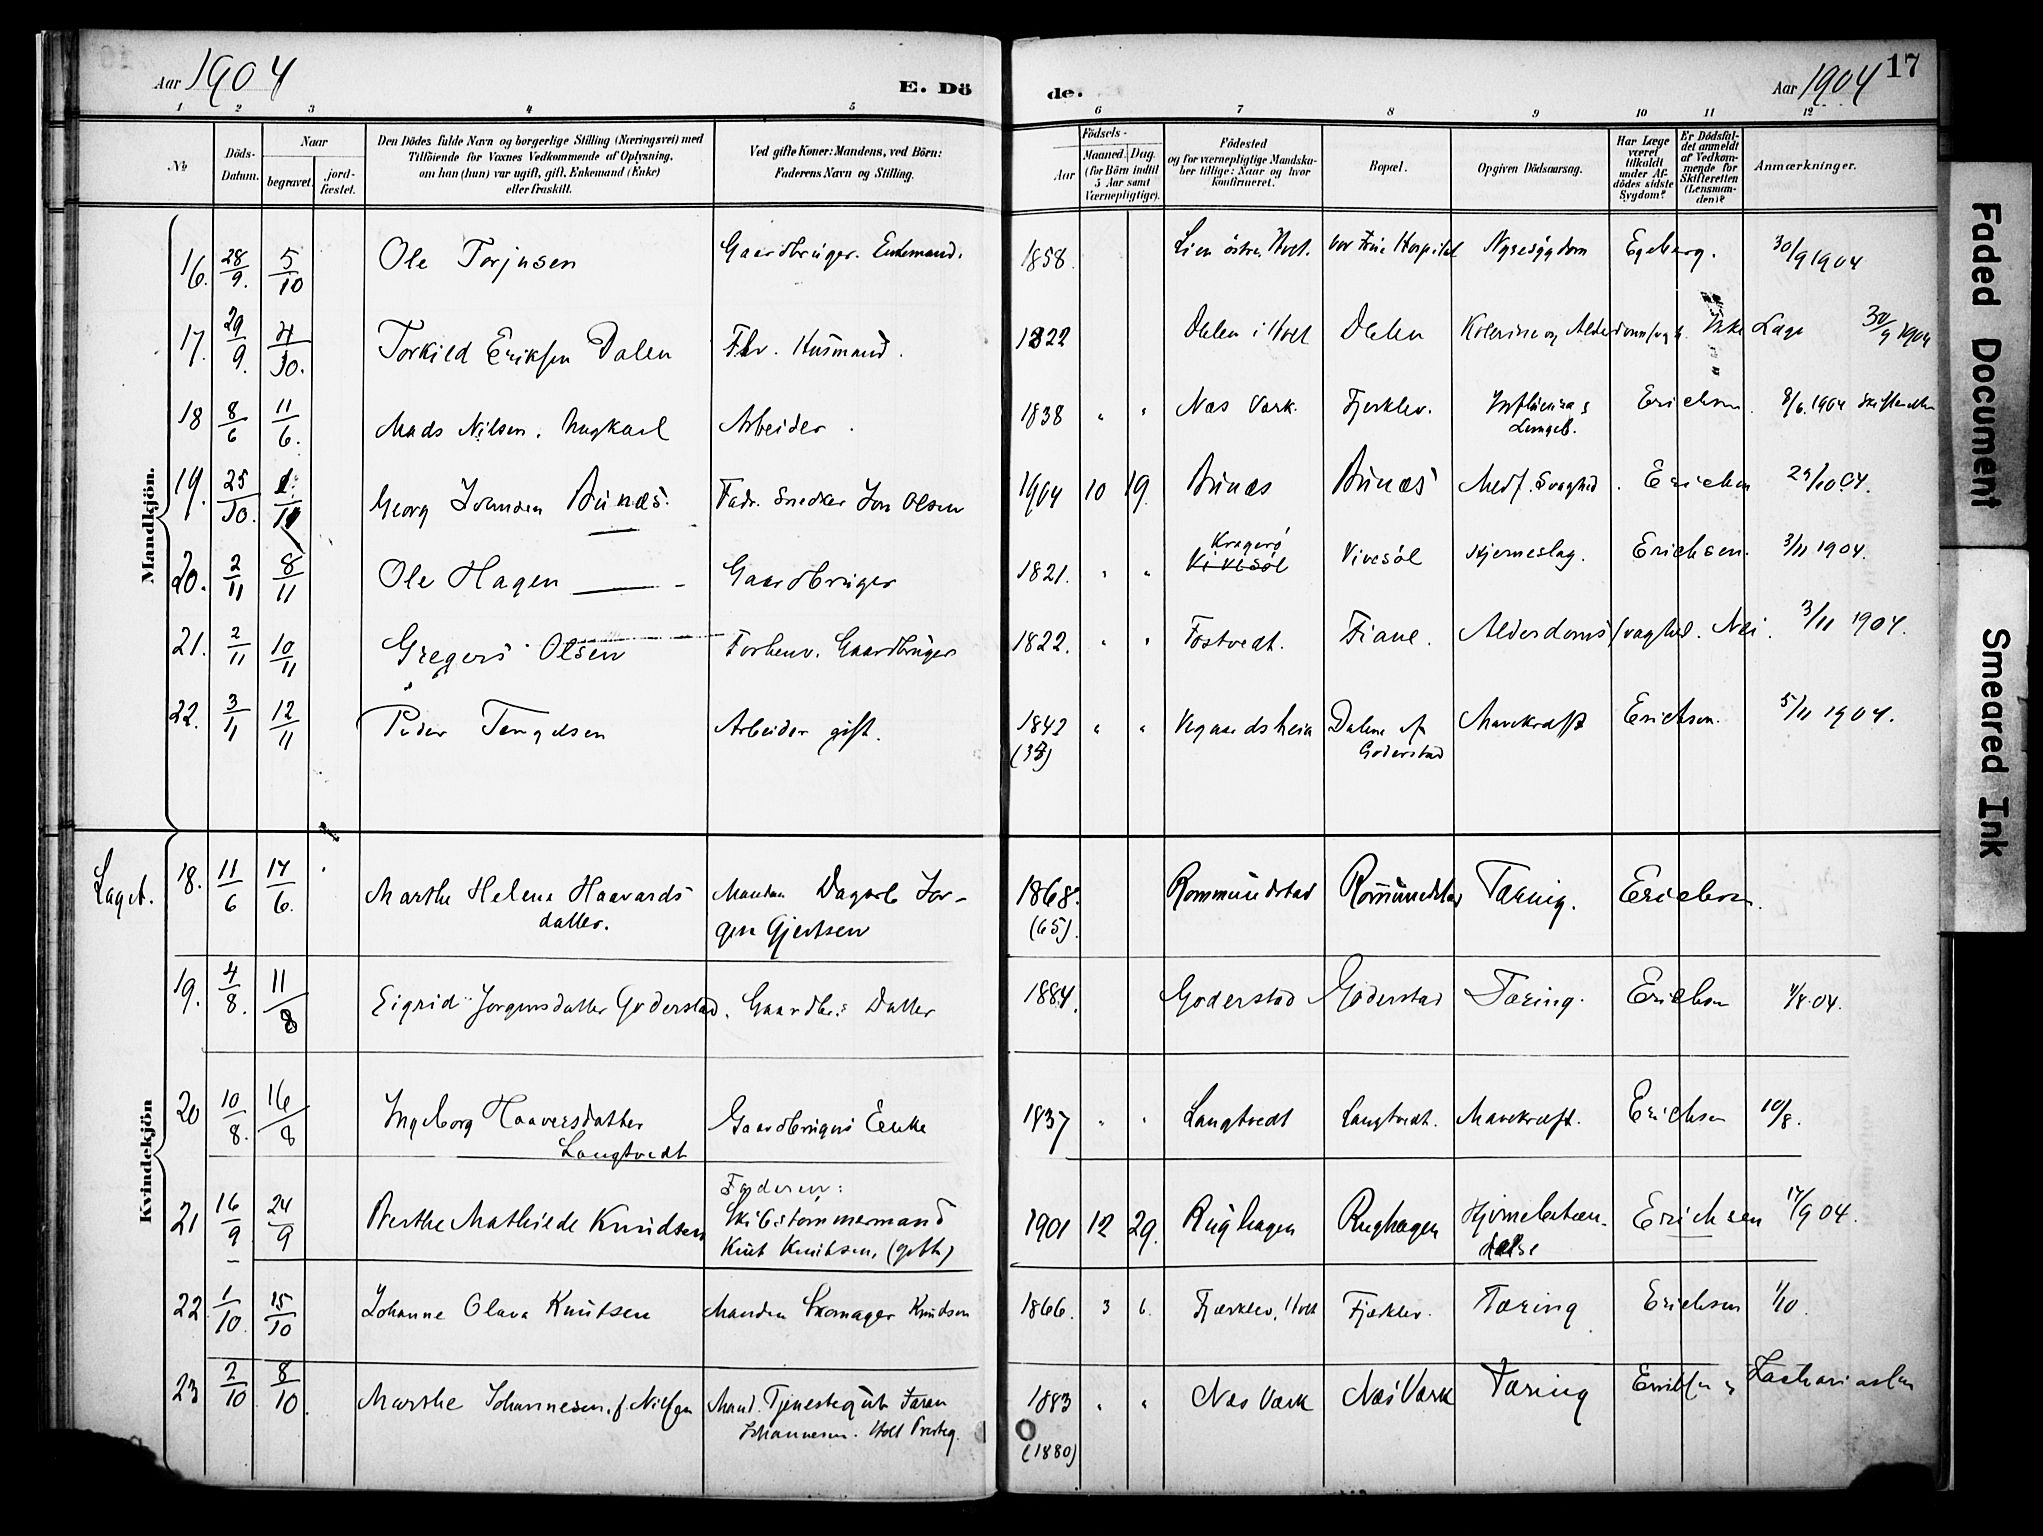 Aar 1904
E. Dö
de.
Aar 1904
17
1 2 3 4 5 6 7 8 9 10 11 12
№
Döds-Datum.
Naar
begravet.
jord-fæstet.
Den Dödes fulde Navn og borgerlige Stilling (Næringsvei) med
Tilföiende for Voxnes Vedkommende af Oplysning,
om han (hun) var ugift, gift, Enkemand (Enke)
eller fraskilt.
Ved gifte Koner: Mandens, ved Börn:
Faderens Navn og Stilling.
Födsels-
Aar
Maaned. Dag.
(for Börn indtil
5 Aar samt
Værnepligtige).
Födested
og for værnepligtige Mandska-
ber tillige: Naar og hvor
konfirmeret.
Bopæl.
Opgiven Dödsaarsag.
Har Læge
været
tilkaldt
under Af-
dödes sidste
Sygdom?
Er Dödsfal-
det anmeldt
af Vedkom-
mende for
Skifteretten
(Lensman-
den)?
Anmærkninger.
Mandkjön.
16. 28/9. 5/10 Ole Torjusen Gaardbruger. Enkemand. 1858. Lien östre, Holt. Vor Frue Hospital Nyresygdom Egeberg. 30/9 1904
17. 29/9. 4/10. Torkild Eriksen Dalen Fhv. Husmand. 1822 Dalen i Holt Dalen 30/9 1904
18 8/6 11/6. Mads Nilsen. Arbeider. 1838 " " Næs Værk. Fjerklev. Influenza & Lungeb. Erichsen. 8/6. 1904
19. 25/10. Georg Johnsen Bunæs. Fadr. Snedker Jon Olsen 1904 10 19 Bunæs Bunæs Medf. Svaghed. Erichsen 29/10.04.
20. 2/11 8/11 Ole Hagen Gaardbruger 1821. " " Kragerø Vivesöl Vivesöl Hjerneslag. Erichsen. 3/11 1904.
21. 2/11 10/11 Gregers Olsen Forhenv. Gaardbruger 1822. " " Fostvedt. Fiane. Alderdomssvaghed. Nei. 3/11 1904.
22. 3/11 12/11 Peder Tengelsen Arbeider gift. 1842 " " Vegaardsheia Dalene af Goderstad Mavekræft Erichsen. 5/11 1904.
Laget.
Kvindekjön
18. 11/6 17/6. Marthe Helene Haavards-
datter. Manden Dagarb Jör-
gen Gjertsen 1868. (65). Rommundstad Rommundstad Tæring. Erichsen.
19. 4/8. 11/8 Sigrid Jörgensdatter Goderstad. Gaardbr.s Datter 1884. Goderstad Goderstad Tæring. Erichsen /8.04.
20 10/8. 16/8 Ingeborg Haaversdatter
Langtvedt Gaardbrugers Enke 1837 " " Langtvedt Langtvedt. Mavekræft. Erichsen 10/8.
21 16/9 24/9 Berthe Mathilde Knudsen Faderen:
Skibstømmermand
Knut Knutsen, (gift) 1901 12 29. Rughagen Rughagen Hjernebetæn-
delse Erichsen 17/9 04.
22 1/10. 15/10 Johanne Olava Knutsen Manden Skomager Knudsen 1866. 3 6. Fjærklev, Holt Fjærklev. Tæring Erichsen 1/10.
23 2/10 8/10. Marthe Johannesen, f. Nilsen Mand. Tjenestegut
Johannesen. Holt Presteg. 1883 (1880) " " Næs Værk Næs Værk Tæring Zachariassen
Faded Document
Smeared Ink